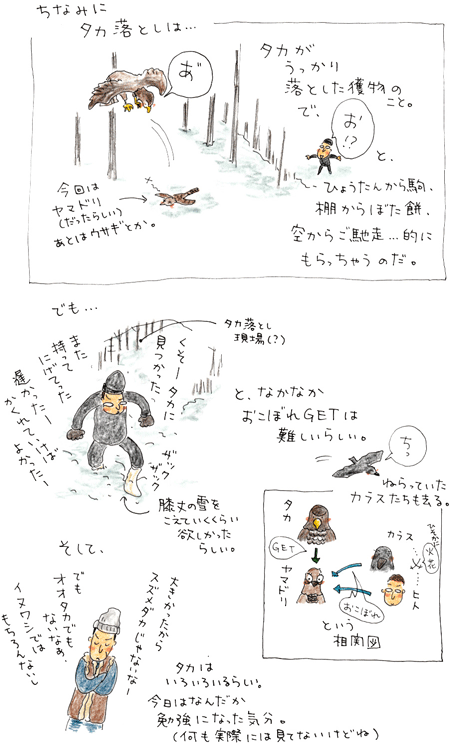 ちなみに
タカ落としは…
あ゛
タカが
うっかり
落とした獲物の
こと。
で、
お!?
と、
ひょうたんから駒、
棚からぼた餅、
空からご馳走…的に
もらっちゃうのだ。
今回は
ヤマドリ
(だったらしい)
あとはウサギとか。
でも…
タカ落とし
現場(?)
くそータカに
見つかった
また
持って
にげてった
遅かったー
かくれていけば
よかったー
ザック
ザック
膝丈の雪を
こえていくくらい
欲しかった
らしい。
と、なかなか
おこぼれGETは
難しいらしい。
ちっ
ねらっていた
カラスたちも去る。
タカ
GET
ヤマドリ
カラス
ひそかに
火花
ヒト
おこぼれ
という
相関図
そして、
大きかったから
スズメダカじゃないなー
でも
オオタカでも
ないなぁ.
イヌワシでは
もちろんないし
タカは
いろいろいるらしい。
今日はなんだか
勉強になった気分。
(何も実際には見てないけどね)